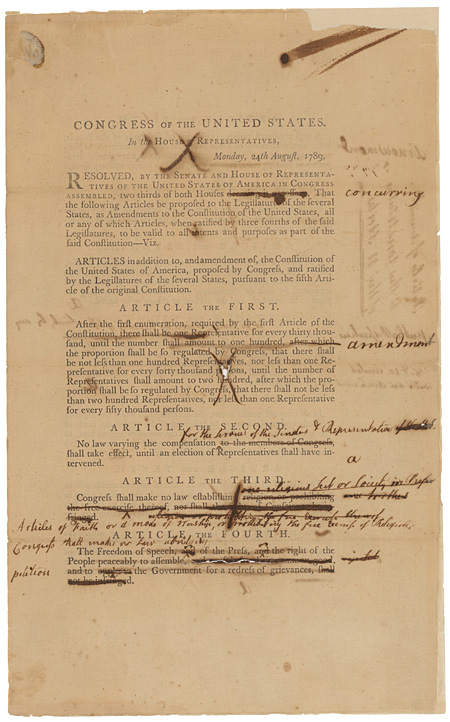 CONGRESS OF THE UNITED STATES.
In the HOUSE of REPRESENTATIVES,
Monday, 24th August, 1789,
RESOLVED, BY THE SENATE AND HOUSE OF REPRESENTA-
TIVES OF THE UNITED STATES OF AMERICA IN CONGRESS
ASSEMBLED, two thirds of both Houses That concurring
the following Articles be proposed to the Legislatures of the several
States, as Amendments to the Constitution of the United States, all
or any of which Articles, when ratified by three fourths of the said
Legislatures, to be valid to all intents and purposes as part of the
said Constitution—Viz.
ARTICLES in addition to, and amendment of, the Constitution of
the United States of America, proposed by Congress, and ratified
by the Legislatures of the several States, pursuant to the fifth Arti-
cle of the original Constitution.
ARTICLE THE FIRST.
After the first enumeration, required by the first Article of the
Constitution, there shall be one Representative for every thirty thou-
sand, until the number shall amount to one hundred, after which amendment
the proportion shall be so regulated by Congress, that there shall
be not less than one hundred Representatives, nor less than one Re-
presentative for every forty thousand persons, until the number of
Representatives shall amount to two hundred, after which the pro-
portion shall be so regulated by Congress, that there shall not be less
than two hundred Representatives, nor less than one Representative
for every fifty thousand persons.
ARTICLE THE SECOND.
for the services of the Senators & Representatives
No law varying the compensation to the members of Congress,
shall take effect, until an election of Representatives shall have in-
tervened.
a
ARTICLE THE THIRD.
one religious sect or society in
Congress shall make no law establishing religion or prohibiting
the free exercise thereof, nor shall the
Articles of Faith or a mode of Worship, or prohibiting the free exercise of Religion,
Congress shall make no law abridging
ARTICLE THE FOURTH.
The Freedom of Speech, of the Press, and the right of the
People peaceably to assemble,
petition
and to the Government for a redress of grievances, shall
not be infringed.